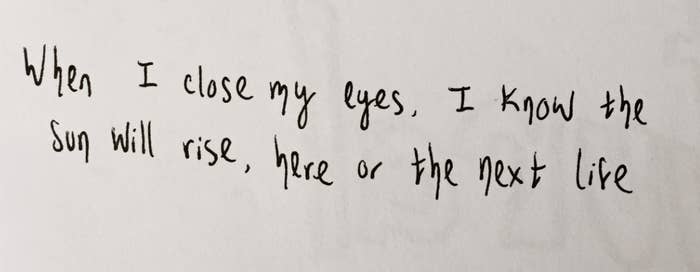 When I close my eyes, I know the
Sun will rise, here or the next life